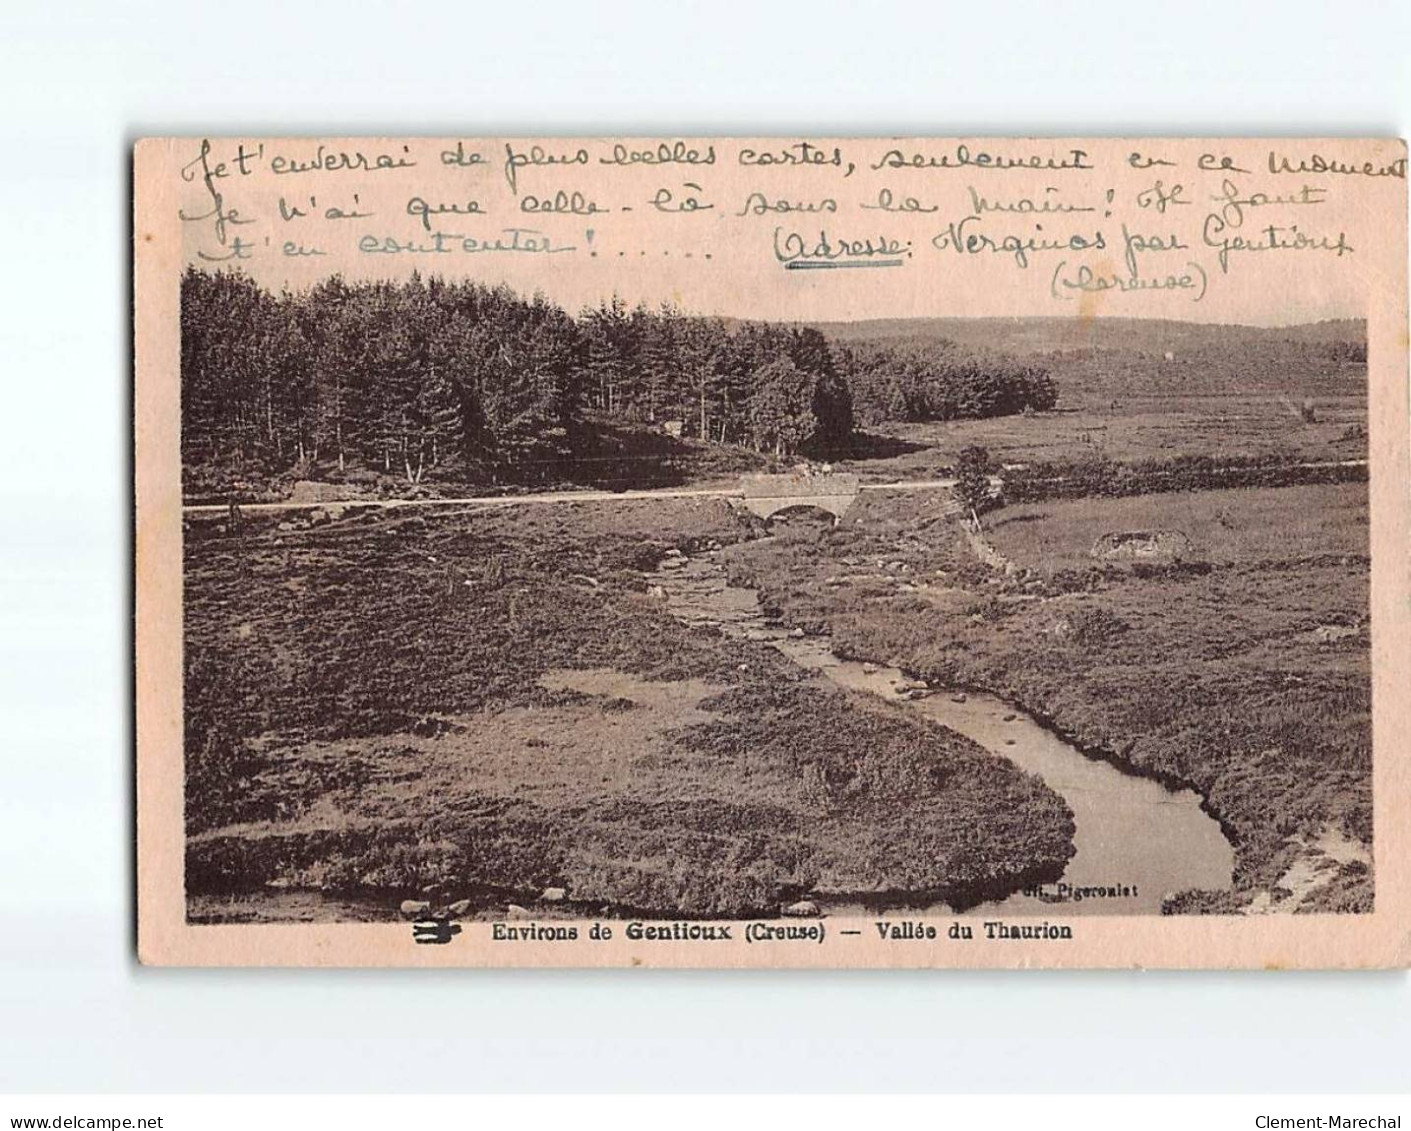 Je t'enverrai de plus belles cartes, seulement en ce moment
Je n'ai que celle-là sous la main! Il faut
t'en contenter!......
Adresse: Verginas par Gentioux
(Creuse)
dit. Pigeroulet
Environs de Gentioux (Creuse) — Vallée du Thaurion
www.delcampe.net
Clement-Marechal